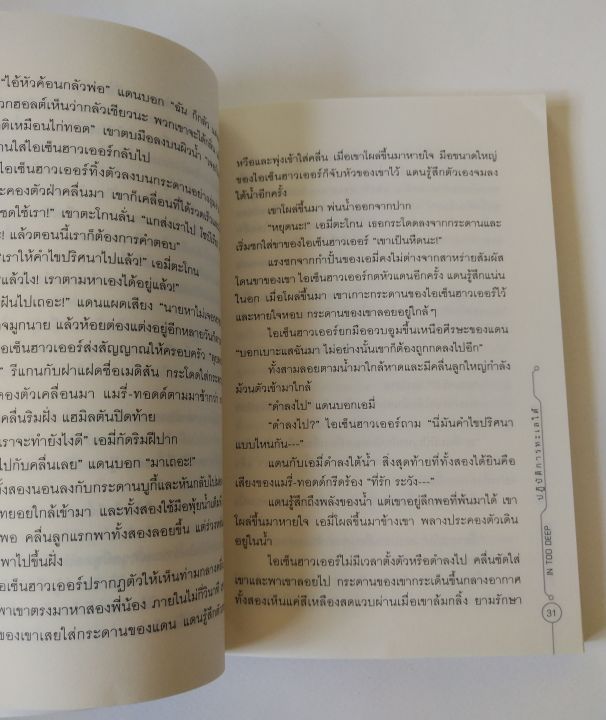 "ไอ้หัวค้อนกลัวพ่อ" แดนบอก "ฉัน ก็กลัว
วกฮอลต์เห็นว่ากลัวเชียวนะ พวกเขาจะได้กลืน
ติเหมือนไก่ทอด" เขาตบมือลงบนผิวน้ำ
านใส่ไอเซ็นฮาวเออร์กลับไป
ไอเซ็นฮาวเออร์ทิ้งตัวลงบนกระดานอย่าง
ะคองตัวฝ่าคลื่นมา เขาก็เคลื่อนที่ได้รวดเร็ว
ซดใช้เรา!" เขาตะโกนลั่น "แกส่งเราไป
ะ! แล้วตอนนี้เราก็ต้องการคำตอบ"
"เราให้คำไขปริศนาไปแล้ว!" เอมี่ตะโกน
แล้วไง! เราตามหาเองได้อยู่แล้ว!"
ฝันไปเถอะ!" แดนแผดเสียง "นายหาไม่เจอ
จมูกนาย แล้วห้อยต่องแต่งอยู่อีกหลายวัน
อเซ็นฮาวเออร์ส่งสัญญาณให้ครอบครัว
" รีแกนกับฝาแฝดชื่อเมดิสัน กระโดดใส่
คองตัวเคลื่อนมา แมรี่-ทอดด์ตามมาช้ากว่า
คลื่นริมฝั่ง แฮมิลตันปิดท้าย
ราจะทำยังไงดี" เอมี่กัดริมฝีปาก
ไปกับคลื่นเลย" แดนบอก "มาเถอะ!"
ทั้งสองนอนลงกับกระดานบูกี้และหันกลับไป
ทยอยใกล้เข้ามา และทั้งสองใช้มือพุ้ยน้ำ
พอ คลื่นลูกแรกพาทั้งสองลอยขึ้น แต่
พาไปขึ้นฝั่ง
อเซ็นฮาวเออร์ปรากฏตัวให้เห็นท่ามกลาง
พาเขาตรงมาหาสองพี่น้อง ภายในไม่กี่วินาที
ของเขาเสยใส่กระดานของแดน แดนรู้สึก
หวือและพุ่งเข้าใส่คลื่น เมื่อเขาโผล่ขึ้นมาหายใจ มือขนาดใหญ่
ของไอเซ็นฮาวเออร์ก็จับหัวของเขาไว้ แดนรู้สึกตัวเองจมลง
ใต้น้ำอีกครั้ง
เขาโผล่ขึ้นมา พ่นน้ำออกจากปาก
"หยุดนะ!" เอมี่ตะโกน เธอกระโดดลงจากกระดานและ
เริ่มชกใส่ขาของไอเซ็นฮาวเออร์ "เขาเป็นหืดนะ!"
แรงชกจากกำปั้นของเอมี่คงไม่ต่างจากสาหร่ายสัมผัส
โดนขาของเขา ไอเซ็นฮาวเออร์กดหัวแดนอีกครั้ง แดนรู้สึกแน่น
ในอก เมื่อโผล่ขึ้นมา เขาเกาะกระดานของไอเซ็นฮาวเออร์ไว้
และหายใจหอบ กระดานของเขาลอยอยู่ใกล้ๆ
ไอเซ็นฮาวเออร์ยกมืออวบอูมขึ้นเหนือศีรษะของแดน
"บอกเบาะแสฉันมา ไม่อย่างนั้นเขาก็ต้องถูกกดลงไปอีก"
ทั้งสามลอยตามน้ำมาใกล้หาดและมีคลื่นลูกใหญ่กำลัง
ม้วนตัวเข้ามาใกล้
"ดำลงไป" แดนบอกเอมี่
"ดำลงไป?" ไอเซ็นฮาวเออร์ถาม "นี่มันคำไขปริศนา
แบบไหนกัน---"
แดนกับเอมี่ดำลงใต้น้ำ สิ่งสุดท้ายที่ทั้งสองได้ยินคือ
เสียงของแมรี่-ทอดด์กรีดร้อง "ที่รัก ระวัง---"
แดนรู้สึกถึงพลังของน้ำ แต่เขาอยู่ลึกพอที่พ้นมาได้ เขา
โผล่ขึ้นมาหายใจ เอมี่โผล่ขึ้นมาข้างเขา พลางประคองตัวเดิน
อยู่ในน้ำ
ไอเซ็นฮาวเออร์ไม่มีเวลาตั้งตัวหรือดำลงไป คลื่นซัดใส่
เขาและพาเขาลอยไป กระดานของเขากระเด็นขึ้นกลางอากาศ
ทั้งสองเห็นแค่สีเหลืองสดแวบผ่านเมื่อเขาล้มกลิ้ง ยามรักษา
ปฏิบัติการทะเลใต้
IN TOO DEEP
31